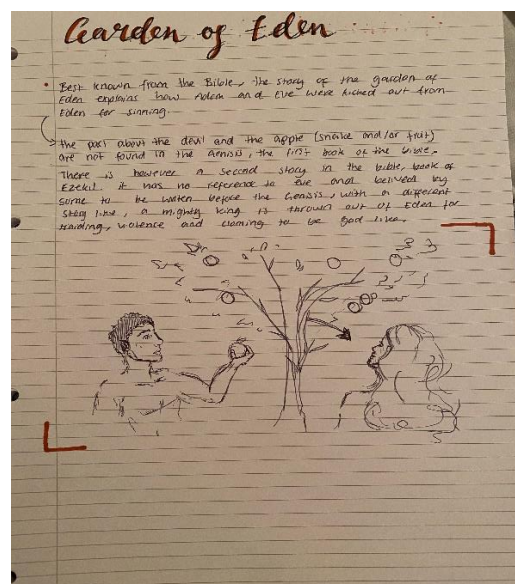 Garden of Eden
• Best known from the Bible, the story of the garden of
Eden explains how Adam and Eve were kicked out from
Eden for sinning.
the part about the devil and the apple (snake and/or fruit)
are not found in the Genisis, the first book of the bible.
There is however a second story in the bible, book of
Ezekiel it has no reference to Eve and belived by
some to be writen before the Genisis, with a different
story line, a mighty king is thrown out of Eden for
raiding, violence and claming to be God like.